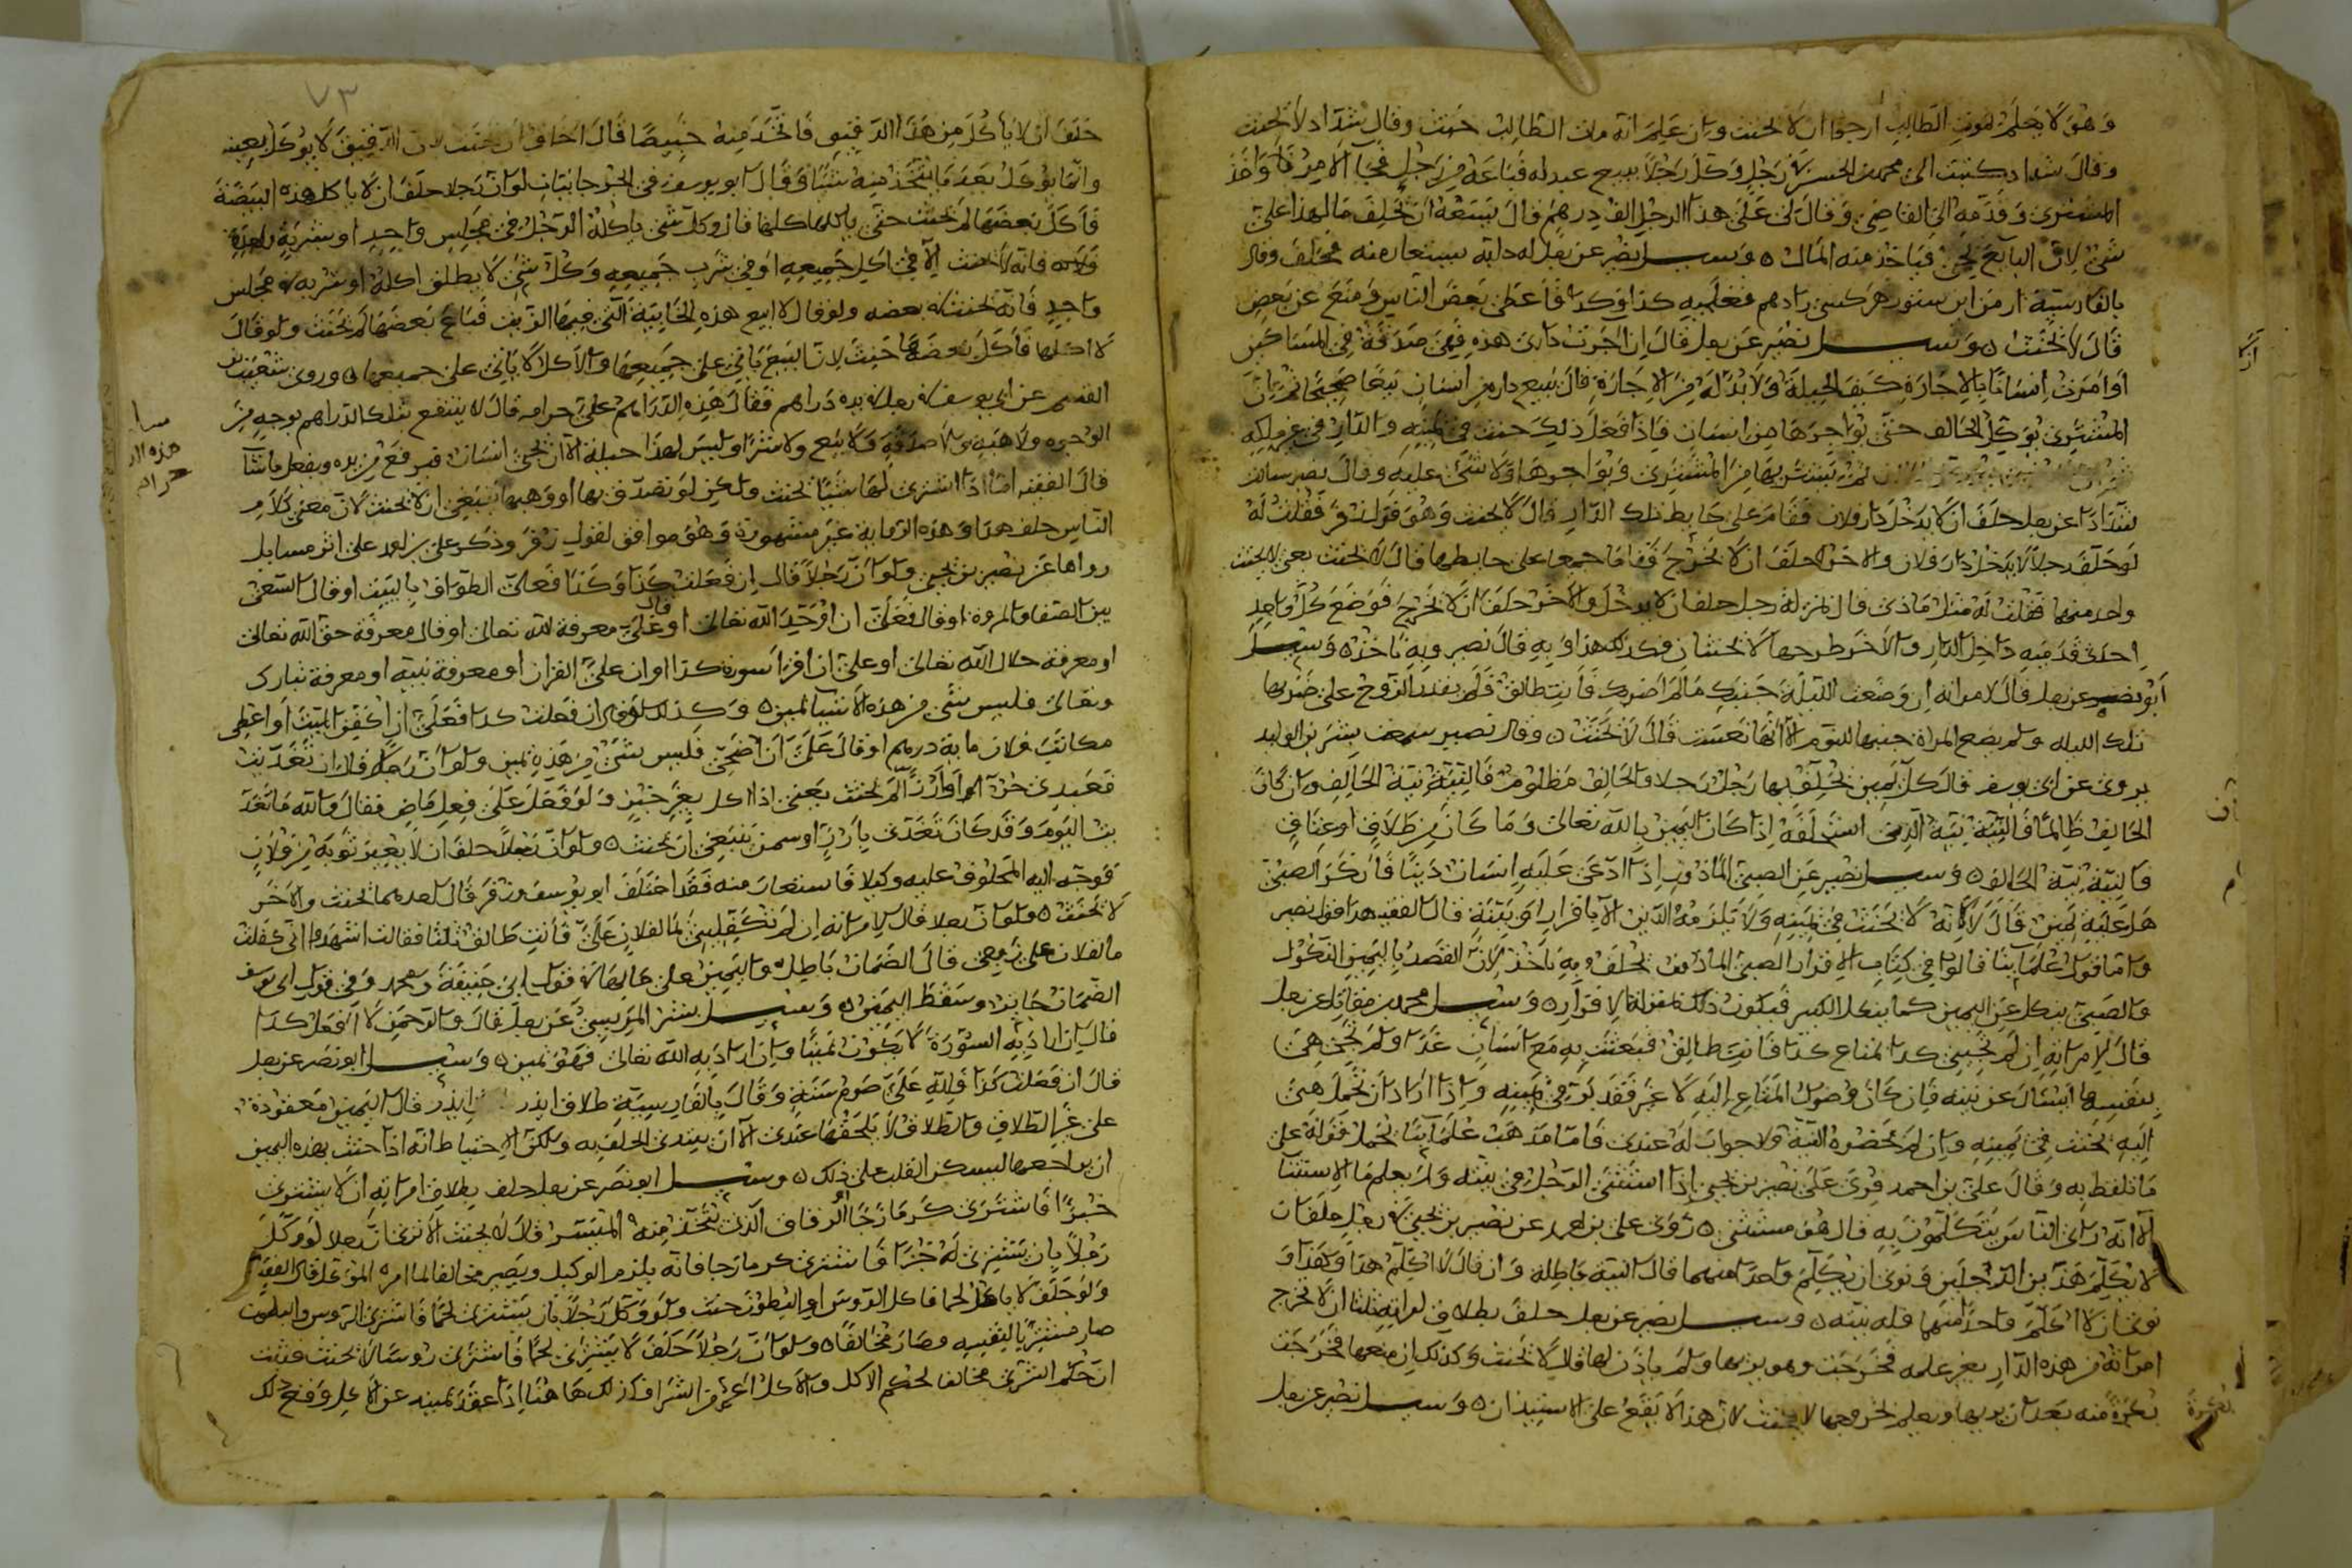 وهو لا يعلم بموت الطالب أرجوا ان لا يحنث وان علم انه مات الطالب حنث وقال شداد لا يحنث
وقال شداد كتبت الى محمد بن الحسن في رجل وكل رجلا ببيع عبد له فباعه من رجل فجاء الامر وأخذ
المشترى وقدمه الى القاضى وقال لى على هذا الرجل الف درهم قال يسعه ان يحلف ما لهذا على
شئ لان البايع يجئ فياخذ منه المال وسئل نصر عن رجل له دابة يستعار منه فحلف وقال
بالفارسية ار من اين ستور هر كسى را دهم فعليه كذا وكذا فأعطى بعض الناس ومنع عن بعض
قال لا يحنث وسئل نصير عن رجل قال ان اجرت دارى هذه فهى صدقة فى المساكين
او امرت انسانا بالاجارة كيف الحيلة ولا بد له من الاجارة قال يبيع داره من انسان بيعا صحيحا ثم ان
المشترى يوكل الحالف حتى يؤاجرها من انسان فاذا فعل ذلك حنث فى يمينه والدار فى غير ملكه
ثم يشتريها من المشترى ويؤاجرها ولا شئ عليه وقال نصر سالت
شدادا عن رجل حلف ان لا يدخل دار فلان فقام على حايط تلك الدار قال لا يحنث وهو قول زفر فقلت له
لو حلف رجلا لا يدخل دار فلان والاخر حلف ان لا يخرج فقاما جميعا على حايطها قال لا يحنث يعنى لا يحنث
واحد منهما فقلت له مثل ماذى قال بمنزلة رجل حلف ان لا يدخل والاخر حلف ان لا يخرج فوضع كل واحد
احدى قدميه داخل الدار والاخر طرحها لا يحنثان فكذلك هذا وبه قال نصير وبه ناخذ وسئل
ابو نصير عن رجل قال لامراته ان وضعت الليلة جنبك ما لم اضربك فأنت طالق فلم يقدر الزوج على ضربها
تلك الليله ولم يضع المراة جنبها للنوم الا انها نعست قال لا يحنث وقال نصير سمعت بشر بن الوليد
يروى عن ابى يوسف قال كل يمين يحلف بها رجل رجلا والحالف مظلوم فالنية نية الحالف وان كان
الحالف ظالما فالنية نية الذى استحلفه اذا كان اليمين بالله تعالى وما كان من طلاق او عتاق
فالنية نية الحالف وسئل نصير عن الصبى الماذون اذا ادعى عليه انسان دينا فانكر الصبى
هل عليه يمين قال لا لانه لا يحنث فى يمينه ولا يلزمه الدين الا باقرار او بينة قال الفقيه هذا قول نصير
واما قول علمآينا قالوا فى كتاب الاقرار الصبى الماذون يحلف وبه ناخذ لان القصد باليمين النكول
والصبى ينكل عن اليمين كما ينكل الكبير فيكون ذلك بمنزلة الاقرار وسئل محمد بن مقاتل عن رجل
قال لامراته ان لم تجيئى كدا بمتاع كدا فانت طالق فبعثت به مع انسان غدا ولم تجئ هى
بنفسها ايسال عن نيته فان كان وصول المتاع اليه لا غير فقد بر فى يمينه واذا اراد ان تحمل هى
اليه يحنث فى يمينه وان لم يحضره النية ولا جواب له عندى فاما مذهب علمآينا يحمل قوله على
ما تلفظ به وقال على بن احمد قرئ على نصير بن يحيى اذا استثنى الرجل فى يمينه ولم يعلم ما الاستثنا
الا انه راى الناس يتكلمون به قال هو مستثنى روى على بن احمد عن نصير بن يحيى فى رجل حلف ان
لا يكلم هذين الرجلين ونوى ان يكلم واحدا منهما قال النية باطلة وان قال لا اكلم هذا وهذا و
نوى ان لا اكلم واحدا منهما فله نيته وسئل نصير عن رجل حلف بطلاق امراته ثلثا ان لا تخرج
امراته من هذه الدار بغير علمه فخرجت وهو يراها ولم ياذن لها قال لا يحنث وكذلك ان منعها فخرجت
بعده منه بعد ان يراها ويعلم خروجها لا يحنث لان هذا لا يقع على الاستيذان وسئل نصير عن رجل
٧٣
حلف ان لا يأكل من هذا الدقيق فاتخذ منه خبيصا قال اخاف ان يحنث لان الدقيق لا يوكل بعينه
وانما يؤكل بعد ما يتخذ منه شيئا وقال ابو يوسف فى لو ان رجلا حلف ان لا ياكل هذه البيضة
فأكل بعضها لم يحنث حتى ياكلها كلها قال وكل شئ ياكله الرجل فى مجلس واحد او يشربه
فانه لا يحنث الا فى اكل جميعه او فى شرب جميعه وكل شئ لا يطلق اكله او شربه فى مجلس
واحد فانه يحنث فى بعضه ولو قال لا ابيع هذه الخابية التى فيها الزيت فباع بعضها لم يحنث ولو قال
لا اكلها فأكل بعضها حنث لان البيع ياتى على جميعها والاكل لا ياتى على جميعها وروى شعيب بن
القسم عن ابى يوسف فى رجل فى يده دراهم فقال هذه الدراهم على حرام قال لا ينتفع بتلك الدراهم بوجه من
الوجوه ولا هبه ولا صدقة ولا بيع ولا شرا وليس لهذا حيلة الا ان يجئ انسان فيرفع من يده ويفعل ما شآ
قال الفقيه اما اذا اشترى لها شيئا يحنث ولكن لو تصدق بها او وهبها ينبغى ان لا يحنث لان معنى كلام
الناس حلف هذا وهذه الرواية غير مشهورة وهو موافق لقول زفر وذكر على بن احمد على اثر مسايل
رواها عن نصير بن يحيى ولو ان رجلا قال ان فعلت كذا وكذا فعلى الطواف بالبيت او قال السعى
بين الصفا والمروة او قال فعلى ان اوحد الله تعالى او قال على معرفة لله تعالى او قال معرفة حق الله تعالى
او معرفة حلال الله تعالى او على ان اقرا سورة كدا او ان على القران او معرفة نبيه او معرفة تبارك
وتعالى فليس شئ من هذه الاشيا بيمين وكذلك لو قال ان فعلت كدا فعلى ان اكفن الميت او اعطى
مكاتب فلان ماية درهم او قال على ان اضحى فليس شئ من هذه بيمين ولو ان رجلا قال ان تغديت
فعبدى حر لم يحنث يعنى اذا اكل بغير خبز ولو فعل على فعل ماض فقال والله ما تغد
يت اليوم وقد كان تغدى بأرز او سمن ينبغى ان يحنث ولو ان رجلا حلف ان لا يعير ثوبه من فلان
فوجه اليه المحلوف عليه وكيلا فاستعار منه فقد اختلف ابو يوسف وزفر قال احدهما يحنث والاخر
لا يحنث ولو ان رجلا قال لامراته ان لم تكفلينى بما لفلان على فأنت طالق ثلثا فقالت اشهدوا انى كفلت
ما لفلان على زوجى قال الضمان باطل واليمين على حالها فى قول ابى حنيفة ومحمد وفى قول ابى يوسف
الضمان جايز وسقط اليمين وسئل بشر المريسى عن رجل قال والرحمن لا افعل كدا
قال ان اراد به السورة لا يكون يمينا وان اراد به الله تعالى فهو يمين وسئل ابو نصر عن رجل
قال ان فعلت كذا فلله على صوم سنة وقال بالفارسية طلاق ايدر ايدر قال اليمين معقودة
على غير الطلاق والطلاق لا يلحقها عندى الا ان يبتدى الحلف به ولكن الاحتياط انه اذا حنث بهذه اليمين
ان يراجعها ليسكن القلب على ذلك وسئل ابو نصر عن رجل حلف بطلاق امراته ان لا يشترى
خبزا فاشترى كرمازجا الرقاق الذى يتخذ منه الميسر قال لا يحنث الا ترى ان رجلا لو وكل
رجلا بان يشترى له خبزا فاشترى كرمازجا فانه يلزم الوكيل ويصير مخالفا لما امره الموكل قال الفقيه
ولو حلف لا ياكل لحما فاكل الروس او البطون حنث ولو وكل رجلا بان يشترى لحما فاشترى الروس والبطون
صار مشتريا لنفسه وصار مخالفا ولو ان رجلا حلف لا يشترى لحما فاشترى روسا لا يحنث فثبت
ان حكم الشرى مخالف لحكم الاكل والاكل اعم من الشرا فكذلك ها هنا اذا عقد يمينه عن الاكل وقع ذلك
هذه الدر
حرام